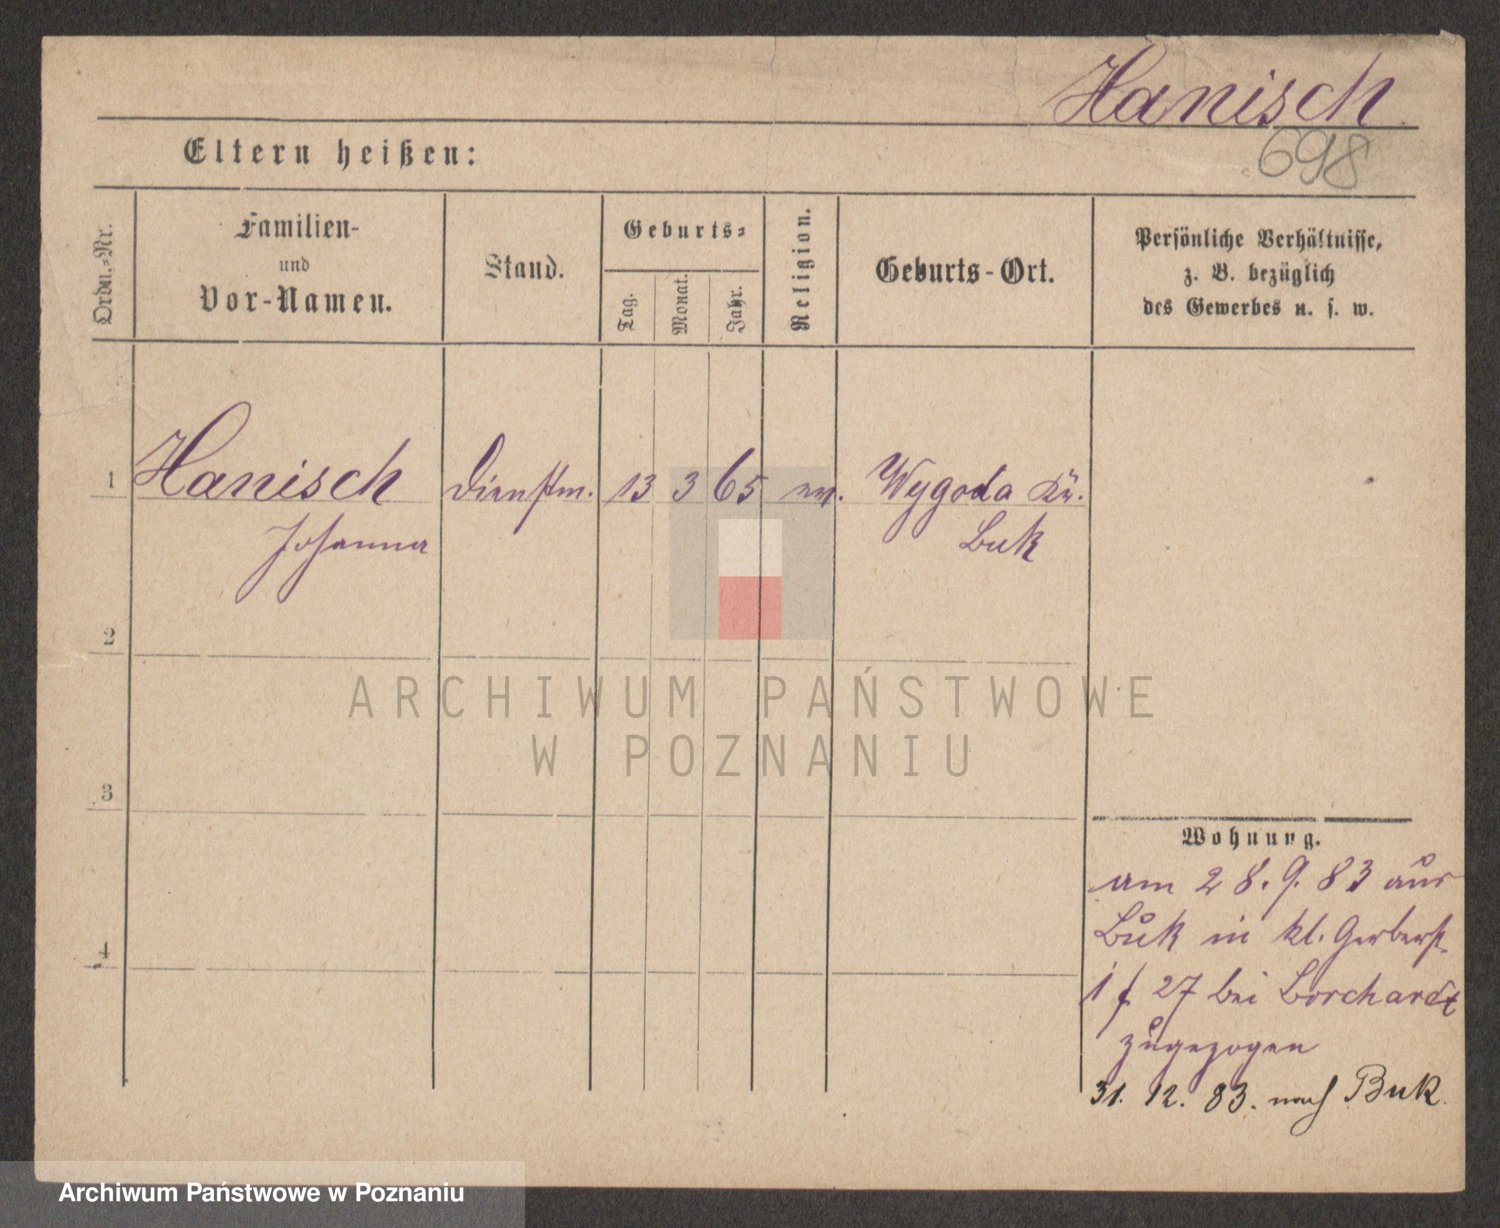 Hanisch
698
Eltern heißen:
Ordn.-Nr.
Familien-
und
Vor-Namen.
Stand.
Geburts-
Tag.
Monat.
Jahr.
Religion.
Geburts-Ort.
Persönliche Verhältnisse,
z. B. bezüglich
des Gewerbes u. s. w.
1 Hanisch Dienstm. 13 3 65 ev. Wygoda Kr.
Johanna Buk
2
3
4
ARCHIWUM PAŃSTWOWE
W POZNANIU
Wohnung.
am 28. 9. 83 aus
Buk in kl. Gerberst.
27 bei Borchardt
zugezogen
31. 12. 83. nach Buk.
Archiwum Państwowe w Poznaniu